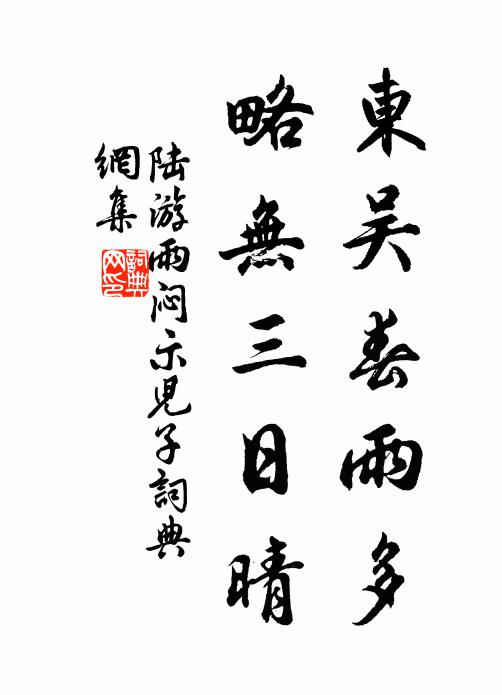 東吴春雨多
略無三日晴
陆游雨闷示児子詞典
網集
詞典网印